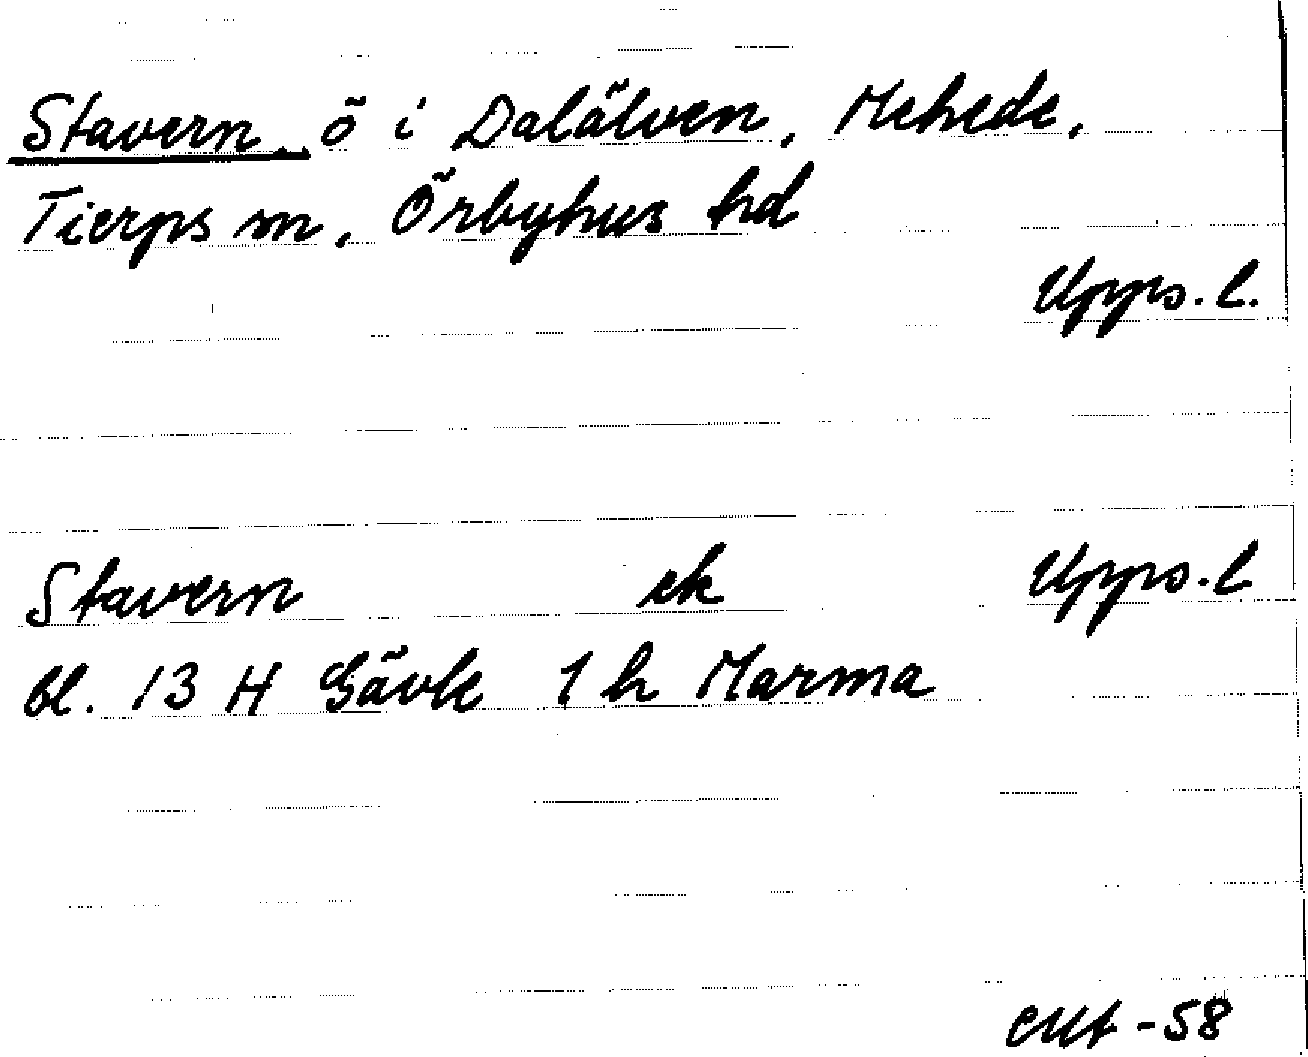 Stavern, ö i Dalälven, Mehede,
Tierps sn, Örbyhus hd
Upps. l.
Stavern ek Upps. l
bl. 13 H Gävle 1 h Marma
-58